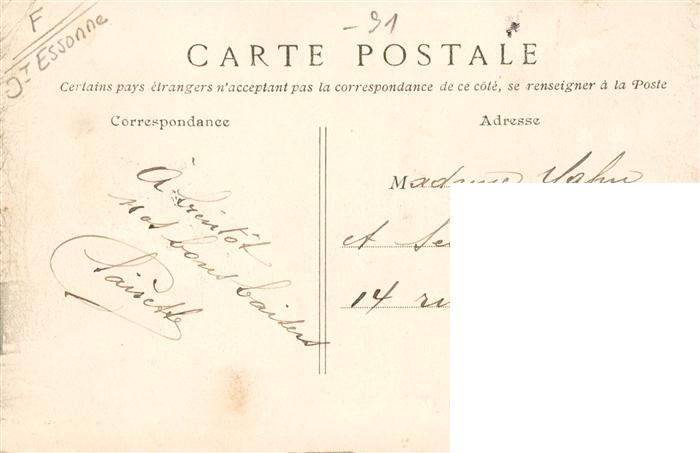 F
Dt ESSONNE
- 91
CARTE POSTALE
Certains pays étrangers n'acceptant pas la correspondance de ce côté, se renseigner à la Poste
Correspondance
Adresse
À bientôt
nos bons baisers
Madame
et
14